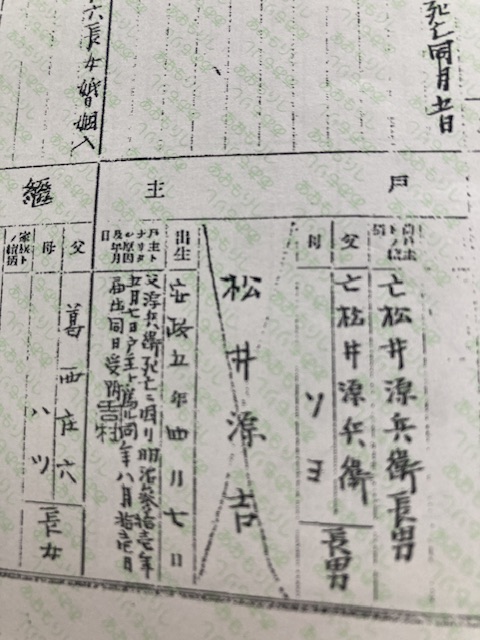 死亡同月
六長女婚姻入
戸主
前戸主トノ続柄
亡松井源兵衛長男
父
亡松井源兵衛
母
ソヨ
長男
松井源吉
出生
安政五年四月七日
戸主ト為リタル原因及年月日
父源兵衛死亡ニ因リ明治参拾壱年
五月七日戸主ト為ル同年八月拾壱日
届出同日受附
父
葛西庄六
母
ハツ
長女
家族トノ続柄